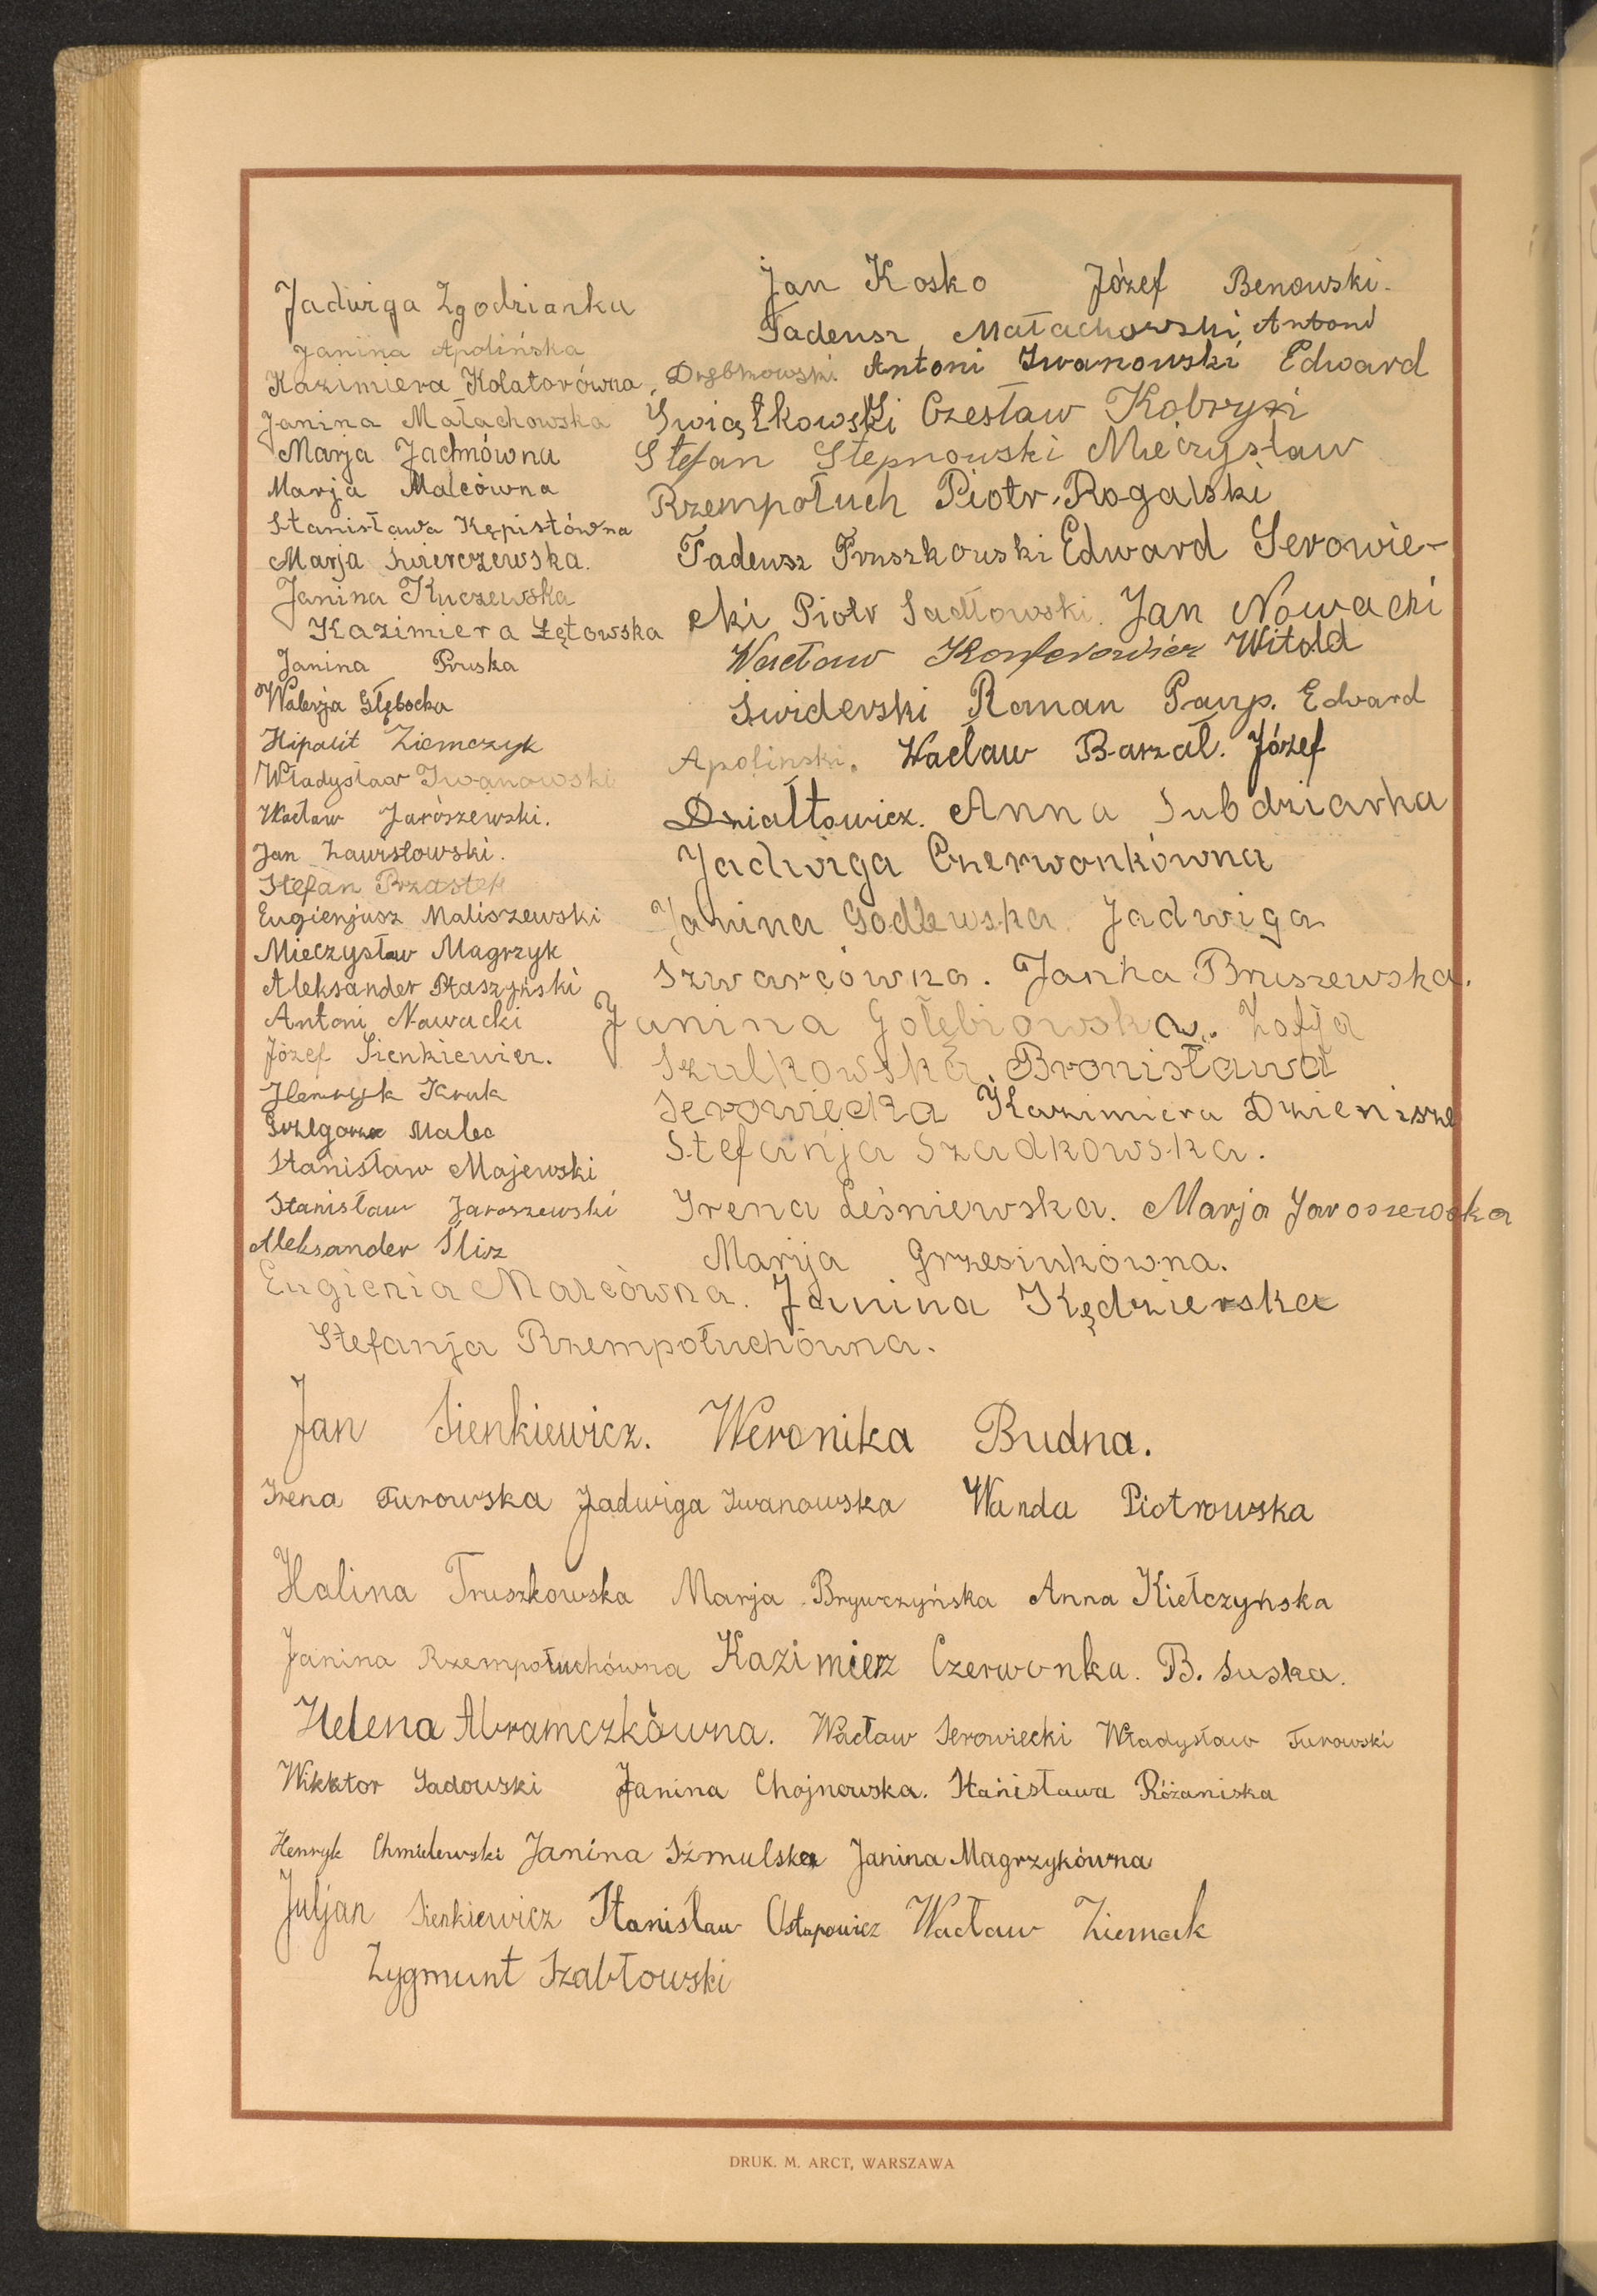 Jadwiga Zgodzianka
Janina Apolińska
Kazimiera Kolatorówna
Janina Małachowska
Marja Jachnówna
Marja Malcówna
Stanisława Kępistówna
Marja Świerczewska.
Janina Kuczewska
Kazimiera Łętowska
Janina Pruska
Walerja Głębocka
Hipolit Ziemczyk
Władysław Iwanowski
Wacław Jaroszewski.
Jan Zawistowski.
Stefan Brzostek
Eugienjusz Maliszewski
Mieczysław Magrzyk
Aleksander Ptaszyński
Antoni Nowacki
Józef Sienkiewicz.
Henryk Kruk
Grzegorz Malec
Stanisław Majewski
Stanisław Jaroszewski
Aleksander Ślisz
Eugienia Malcówna.
Stefanja Rzempołuchówna.
Jan Kosko Józef Benowski.
Tadeusz Małachowski, Antoni
Antoni Iwanowski Edward
Świątkowski Czesław
Stefan Stepnowski Mieczysław
Rzempołuch Piotr Rogalski
Tadeusz Pruszkowski Edward Serowie-
cki Piotr Sadłowski. Jan Nowacki
Wacław Witold
Świderski Roman Edward
Apolinski. Wacław Barzał. Józef
Działtowicz. Anna Subdziarka
Jadwiga Czerwonkówna
Janina Godlewska Jadwiga
Szwarcówna. Janina Bruszewska.
Janina Gołębiowska. Zofja
Szulkowska. Bronisława
Serowiecka Kazimiera Dzienisze
Stefanja Szadkowska.
Irena Leśniewska. Marja Jaroszewska
Marija Grzesiukówna.
Janina Kędzierska
Jan Sienkiewicz. Weronika Budna.
Irena Turowska Jadwiga Iwanowska Wanda Piotrowska
Halina Truszkowska Marja Brywczyńska Anna Kiełczyńska
Janina Rzempołuchówna Kazimierz Czerwonka. B. Suska.
Helena Abramczkówna. Wacław Serowiecki Władysław Turowski
Wikktor Sadowski Janina Chojnowska. Stanisława Różaniska
Henryk Chmielewski Janina Szmulska Janina Magrzykówna
Juljan Sienkiewicz Stanisław Ostapowicz Wacław Ziemak
Zygmunt Szabłowski
DRUK. M. ARCT, WARSZAWA